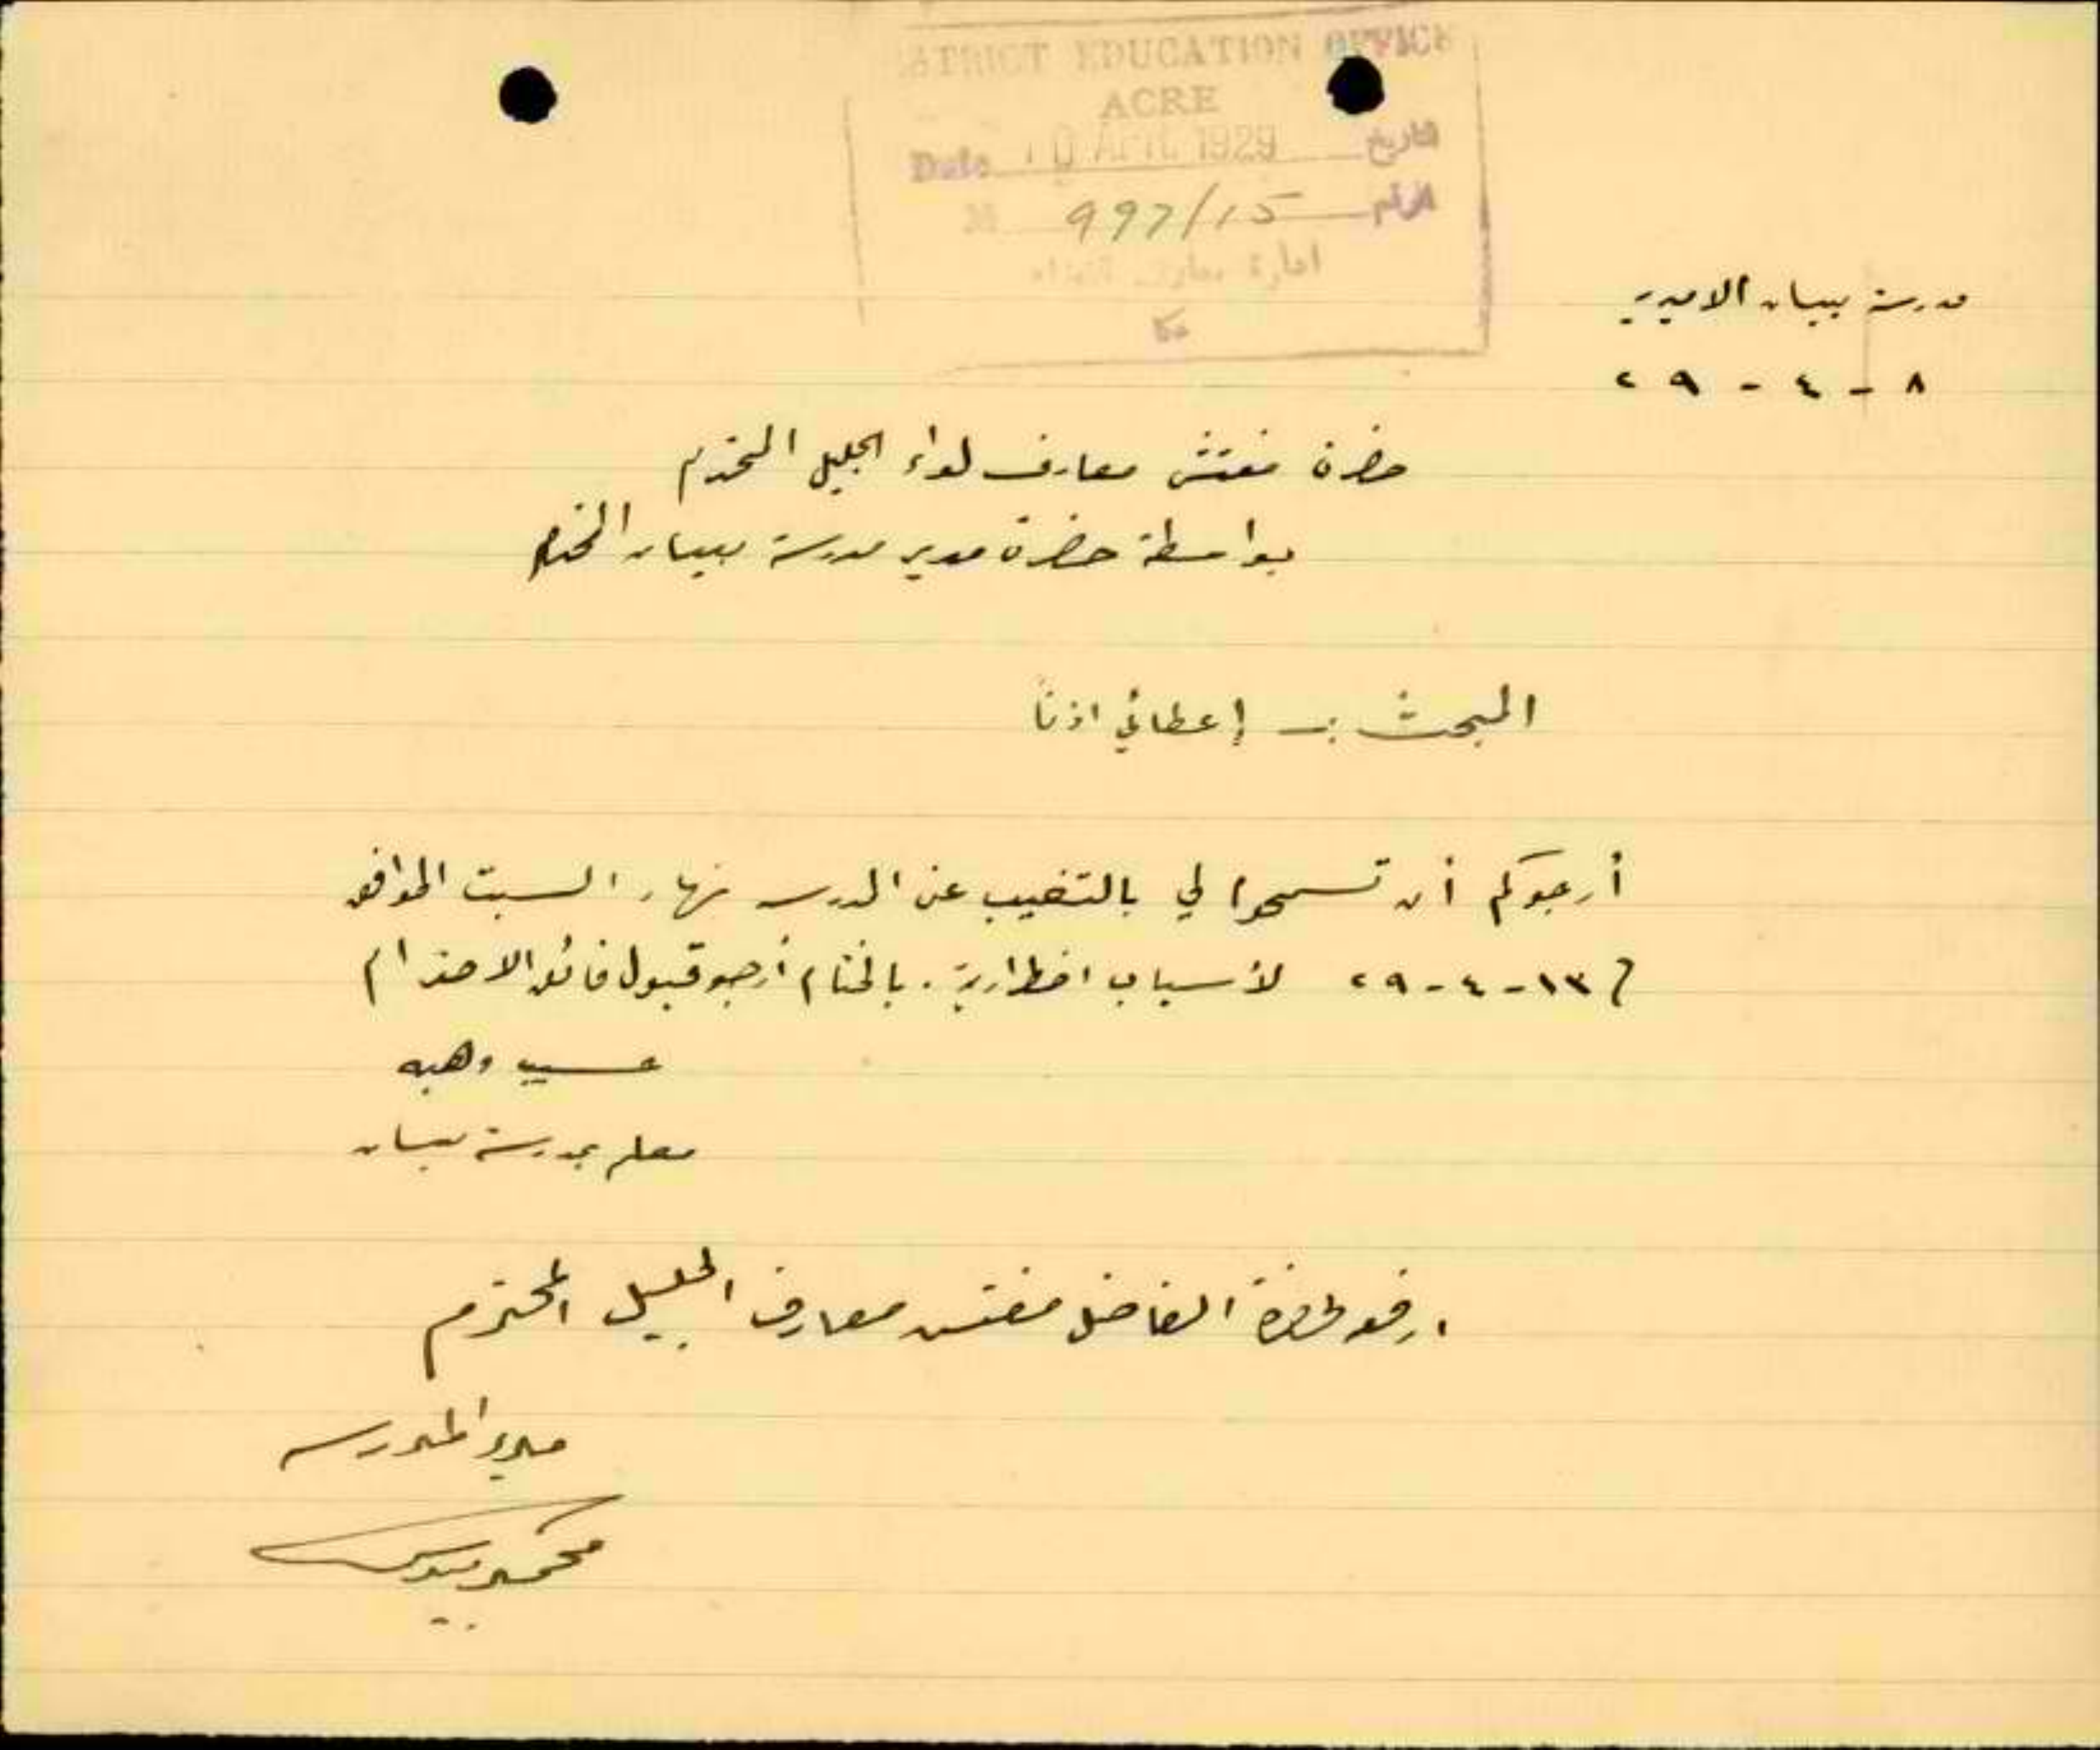 DISTRICT EDUCATION OFFICE
ACRE
Date 10 APR. 1929 تاريخ
N 997/15 الرقم
ادارة معارف قضاء
عكا
مدرسة بيسان الاميرية
٨ - ٤ - ٢٩
حضرة مفتش معارف لواء الجليل المحترم
بواسطة حضرة مدير مدرسة بيسان المحترم
المبحث :- إعطائي اذناً
أرجوكم أن تسمحوا لي بالتغيب عن الدرس نهار السبت الموافق
١٣-٤-٢٩ لأسباب اضطرارية. بالختام أرجو قبول فائق الاحترام
وهبه
معلم بمدرسة بيسان
ارفعه لحضرة الفاضل مفتش معارف الجليل المحترم
مدير المدرسه
محمد